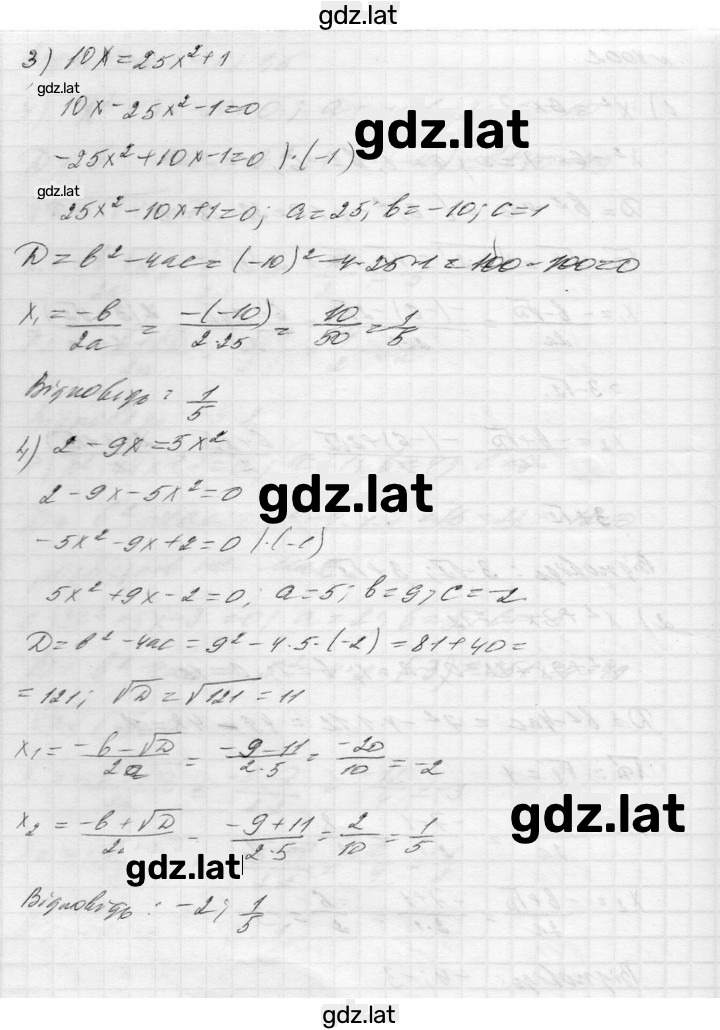 gdz.lat
3) 10x=25x²+1
gdz.lat
10x-25x²-1=0
gdz.lat
-25x²+10x-1=0 |·(-1)
gdz.lat
25x²-10x+1=0; a=25; b=-10; c=1
D=b²-4ac=(-10)²-4·25·1=100-100=0
x₁=-b/2a=-(-10)/2·25=10/50=1/5
Відповідь: 1/5
4) 2-9x=5x²
2-9x-5x²=0
gdz.lat
-5x²-9x+2=0 |·(-1)
5x²+9x-2=0; a=5; b=9; c=-2
D=b²-4ac=9²-4·5·(-2)=81+40=
=121; √D=√121=11
x₁=-b-√D/2a=-9-11/2·5=-20/10=-2
gdz.lat
x₂=-b+√D/2a=-9+11/2·5=2/10=1/5
gdz.lat
Відповідь: -2; 1/5
gdz.lat